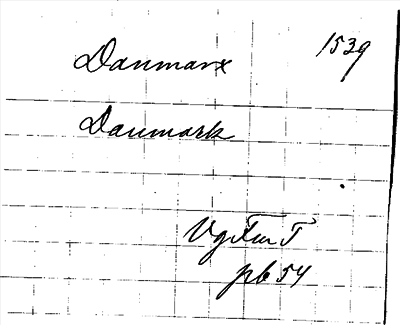 Danmarx 1539
Danmark
Vg Fur T
pb 54